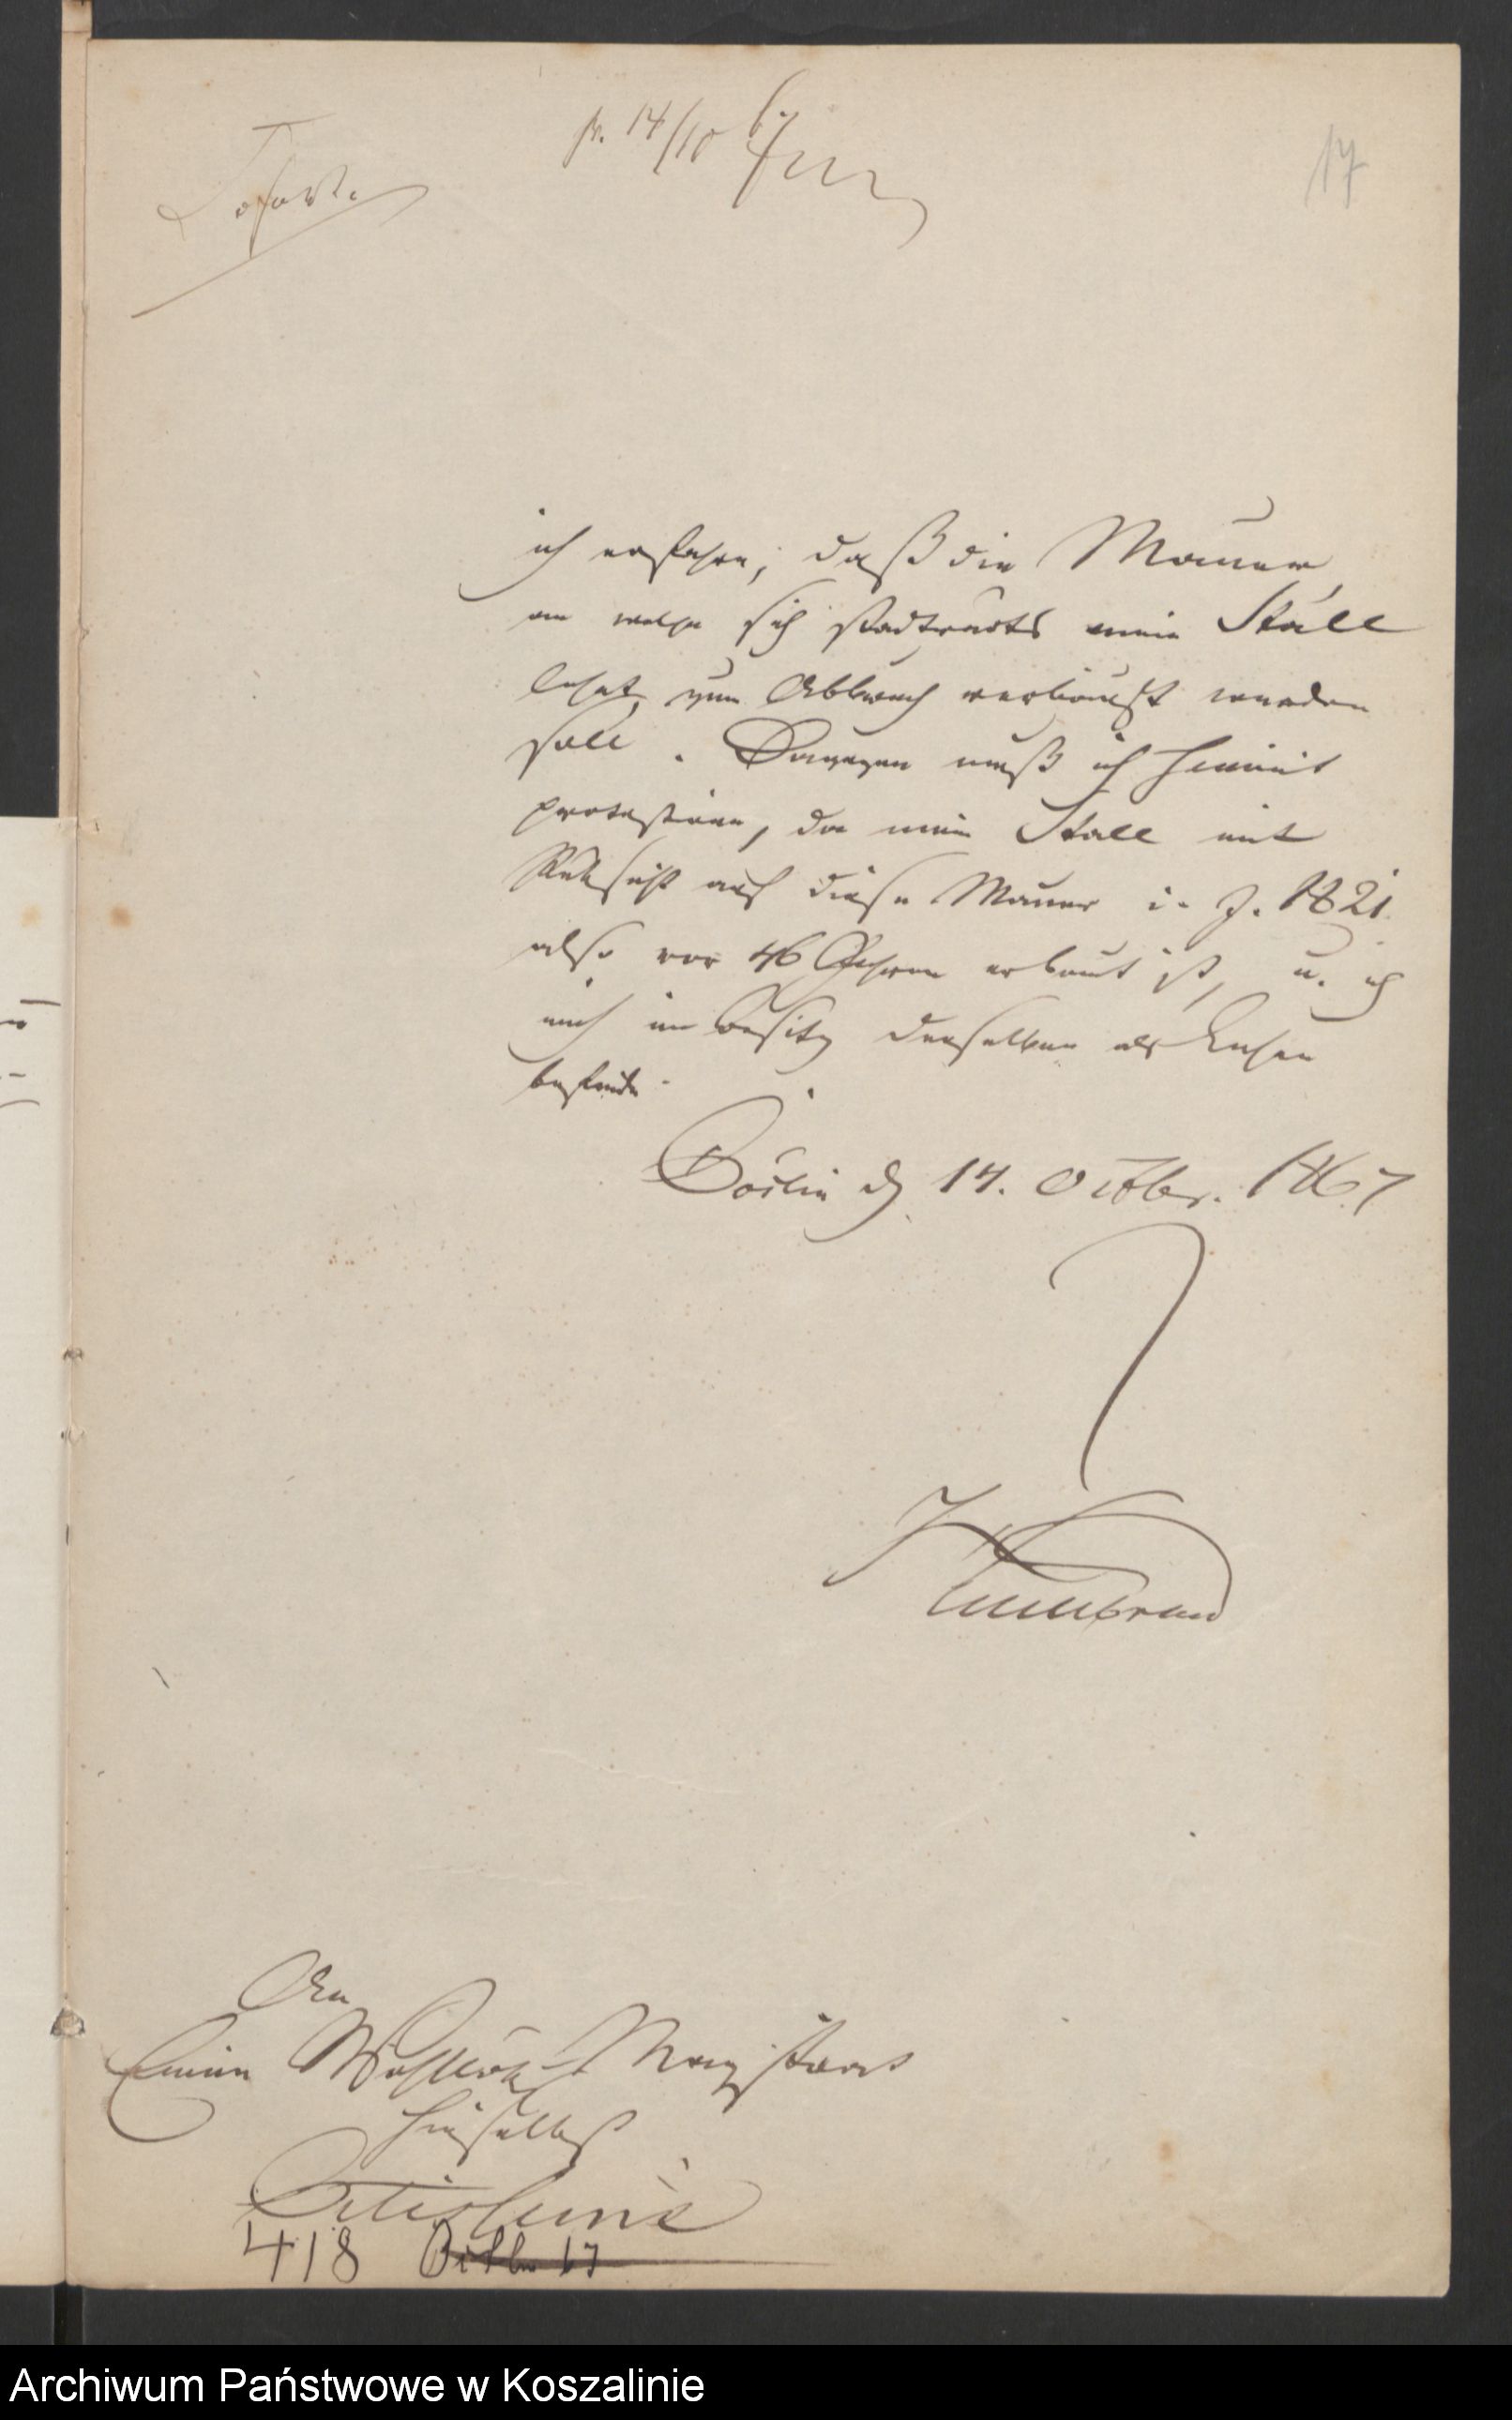 pr. 14/10 67
17
ich erfahre, daß die Mauer
an welche sich stadtwärts mein Stall
lehnt, zum Abbruch verkauft werden
soll. Dagegen muß ich hiermit
protestiren, da mein Stall mit
Rücksicht auf diese Mauer i. J. 1821
also vor 46 Jahren erbaut ist, u. ich
mich im Besitz derselben als Lehne
befinde.
Cöslin d. 14. Octbr. 1867
An
Einen Wohllöbl. Magistrat
hieselbst
418 Octbr 67
Archiwum Państwowe w Koszalinie